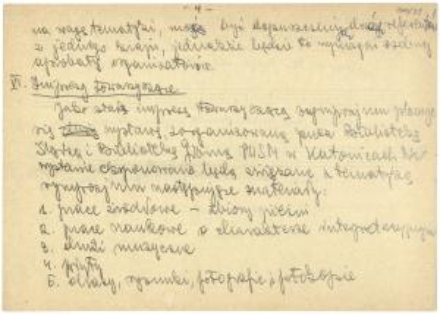 - 4 -
na wagę tematyki, mogą być dopuszczeni dwaj referenci
z jednego kraju, jednakże będzie to wymagać osobnej
aprobaty organizatorów.
VI. Imprezy towarzyszące
Jako stałą imprezę towarzyszącą sympozjum planuje
się wystawę zorganizowaną przez Bibliotekę
Śląską i Bibliotekę Główną PWSM w Katowicach. Na
wystawie eksponowane będą związane z tematyką
sympozjum następujące materiały:
1. prace źródłowe - zbiory pieśni
2. prace naukowe o charakterze
3. druki muzyczne
4. płyty
5. obrazy, rysunki, fotografie i fotokopie